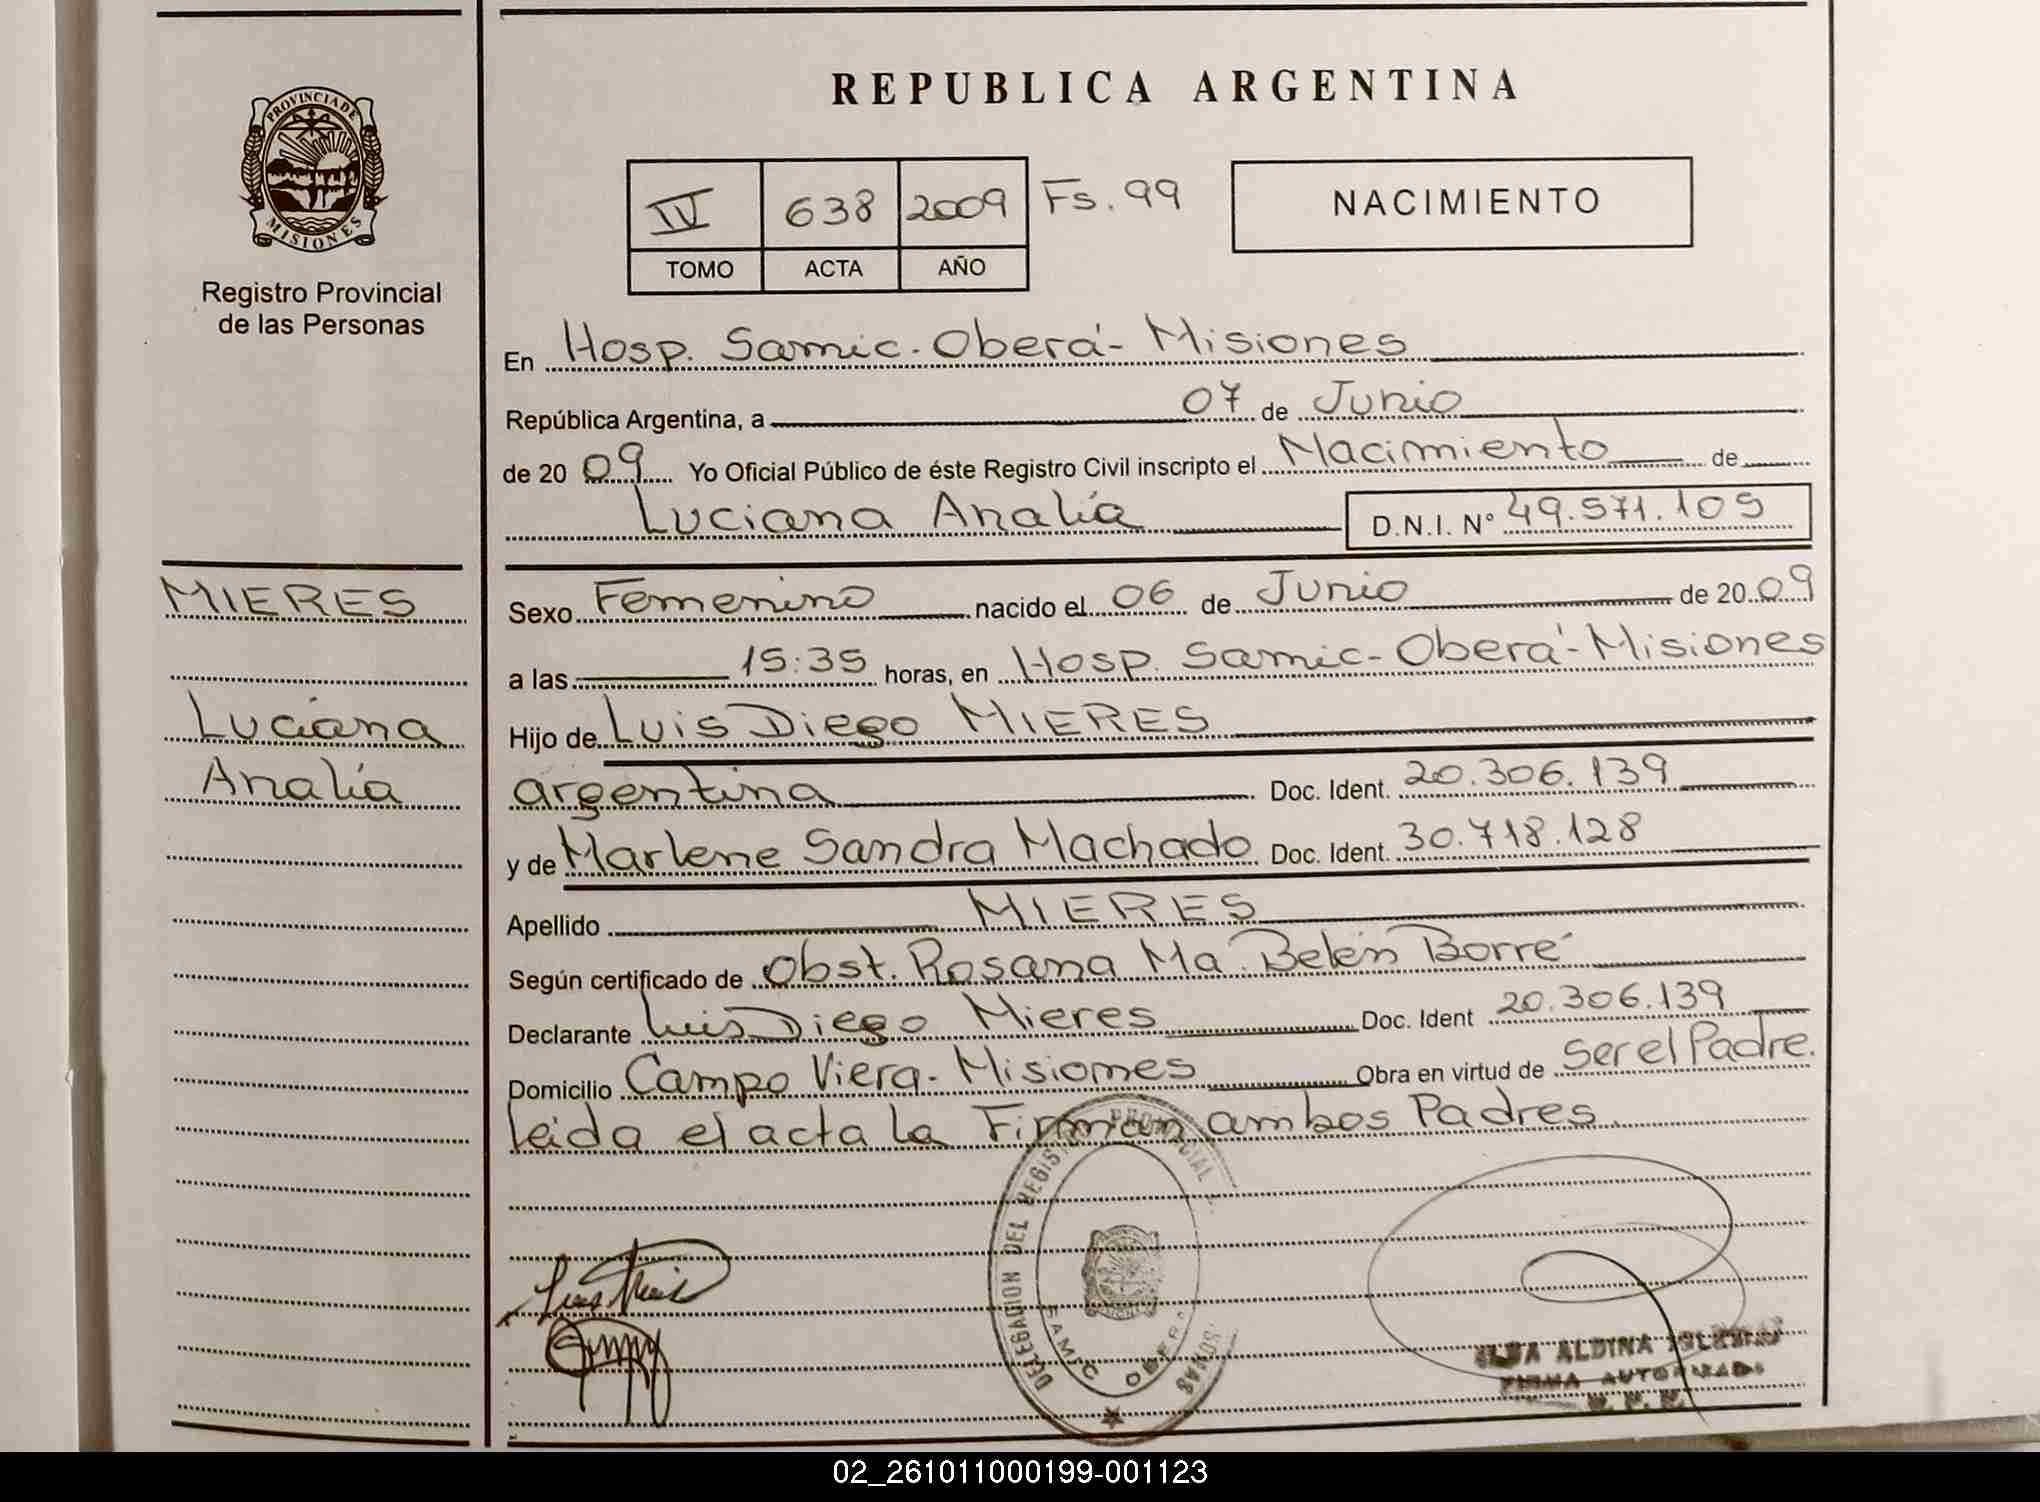 REPUBLICA ARGENTINA
PROVINCIA DE
MISIONES
Registro Provincial
de las Personas
IV 638 2009 Fs. 99
TOMO ACTA AÑO
NACIMIENTO
En Hosp. Samic. Oberá - Misiones
República Argentina, a 07 de Junio
de 20 09 Yo Oficial Público de éste Registro Civil inscripto el Nacimiento de
Luciana Analía D.N.I. N° 49.571.105
MIERES
Luciana
Analía
Sexo Femenino nacido el 06 de Junio de 20 09
a las 15:35 horas, en Hosp. Samic - Oberá - Misiones
Hijo de Luis Diego MIERES
argentina Doc. Ident. 20.306.139
y de Marlene Sandra Machado Doc. Ident. 30.718.128
Apellido MIERES
Según certificado de Obst. Rosana Ma. Belén Borré
Declarante Luis Diego Mieres Doc. Ident 20.306.139
Domicilio Campo Viera - Misiones Obra en virtud de Ser el Padre.
leida el acta la Firman ambos Padres
DELEGACION DEL REGISTRO PROVINCIAL
SAMIC OBERA
ALDINA
FIRMA AUTORIZADA
02_261011000199-001123